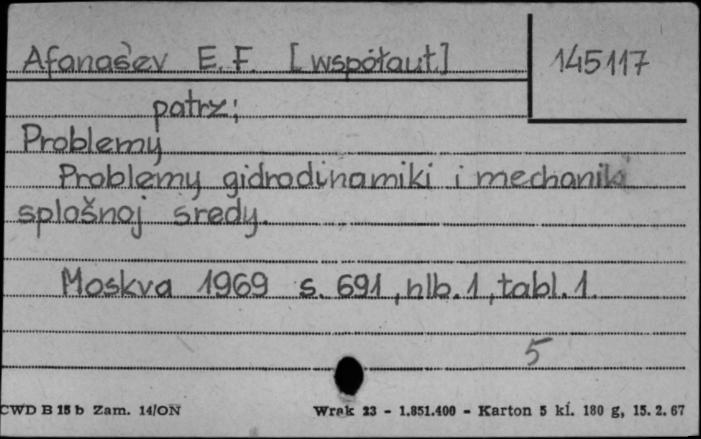 Afanas'ev E. F. [współaut] 145117
patrz;
Problemy
Problemy gidrodinamiki i mechaniki
splošnoj sredy.
Moskva 1969 s. 691, nlb. 1, tabl. 1.
5
CWD B 15 b Zam. 14/ON Wrak 23 - 1.851.400 - Karton 5 kl. 180 g, 15. 2. 67